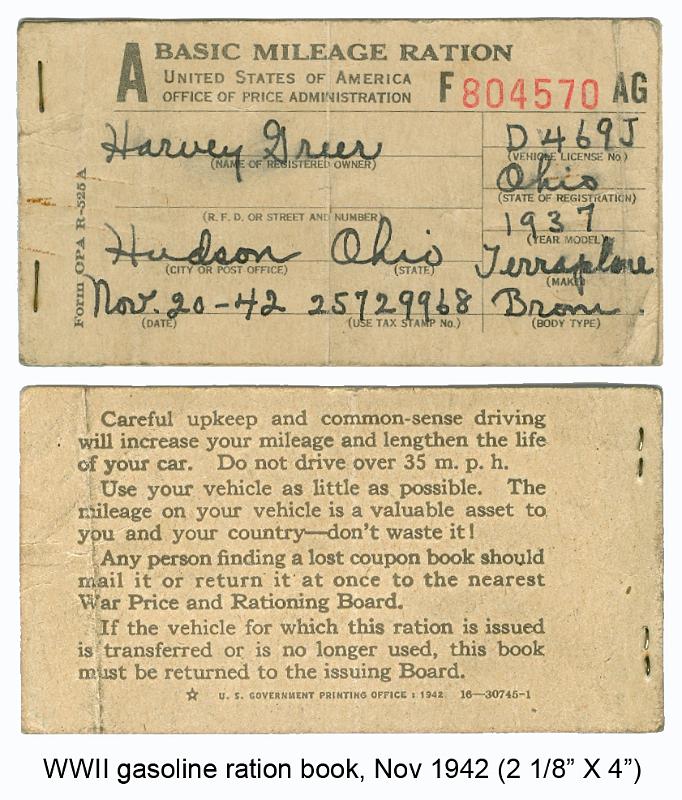 A BASIC MILEAGE RATION
UNITED STATES OF AMERICA
OFFICE OF PRICE ADMINISTRATION
F 804570 AG
Harvey Greer
(NAME OF REGISTERED OWNER)
D 469J
(VEHICLE LICENSE NO.)
Ohio
(STATE OF REGISTRATION)
(R. F. D. OR STREET AND NUMBER)
1937
(YEAR MODEL)
Hudson Ohio
(CITY OR POST OFFICE) (STATE)
Terraplane
(MAKE)
Nov. 20-42 25729968
(DATE) (USE TAX STAMP No.)
(BODY TYPE)
Form OPA R-525 A
Careful upkeep and common-sense driving
will increase your mileage and lengthen the life
of your car. Do not drive over 35 m. p. h.
Use your vehicle as little as possible. The
mileage on your vehicle is a valuable asset to
you and your country—don't waste it!
Any person finding a lost coupon book should
mail it or return it at once to the nearest
War Price and Rationing Board.
If the vehicle for which this ration is issued
is transferred or is no longer used, this book
must be returned to the issuing Board.
☆ U. S. GOVERNMENT PRINTING OFFICE : 1942 16—30745-1
WWII gasoline ration book, Nov 1942 (2 1/8” X 4”)